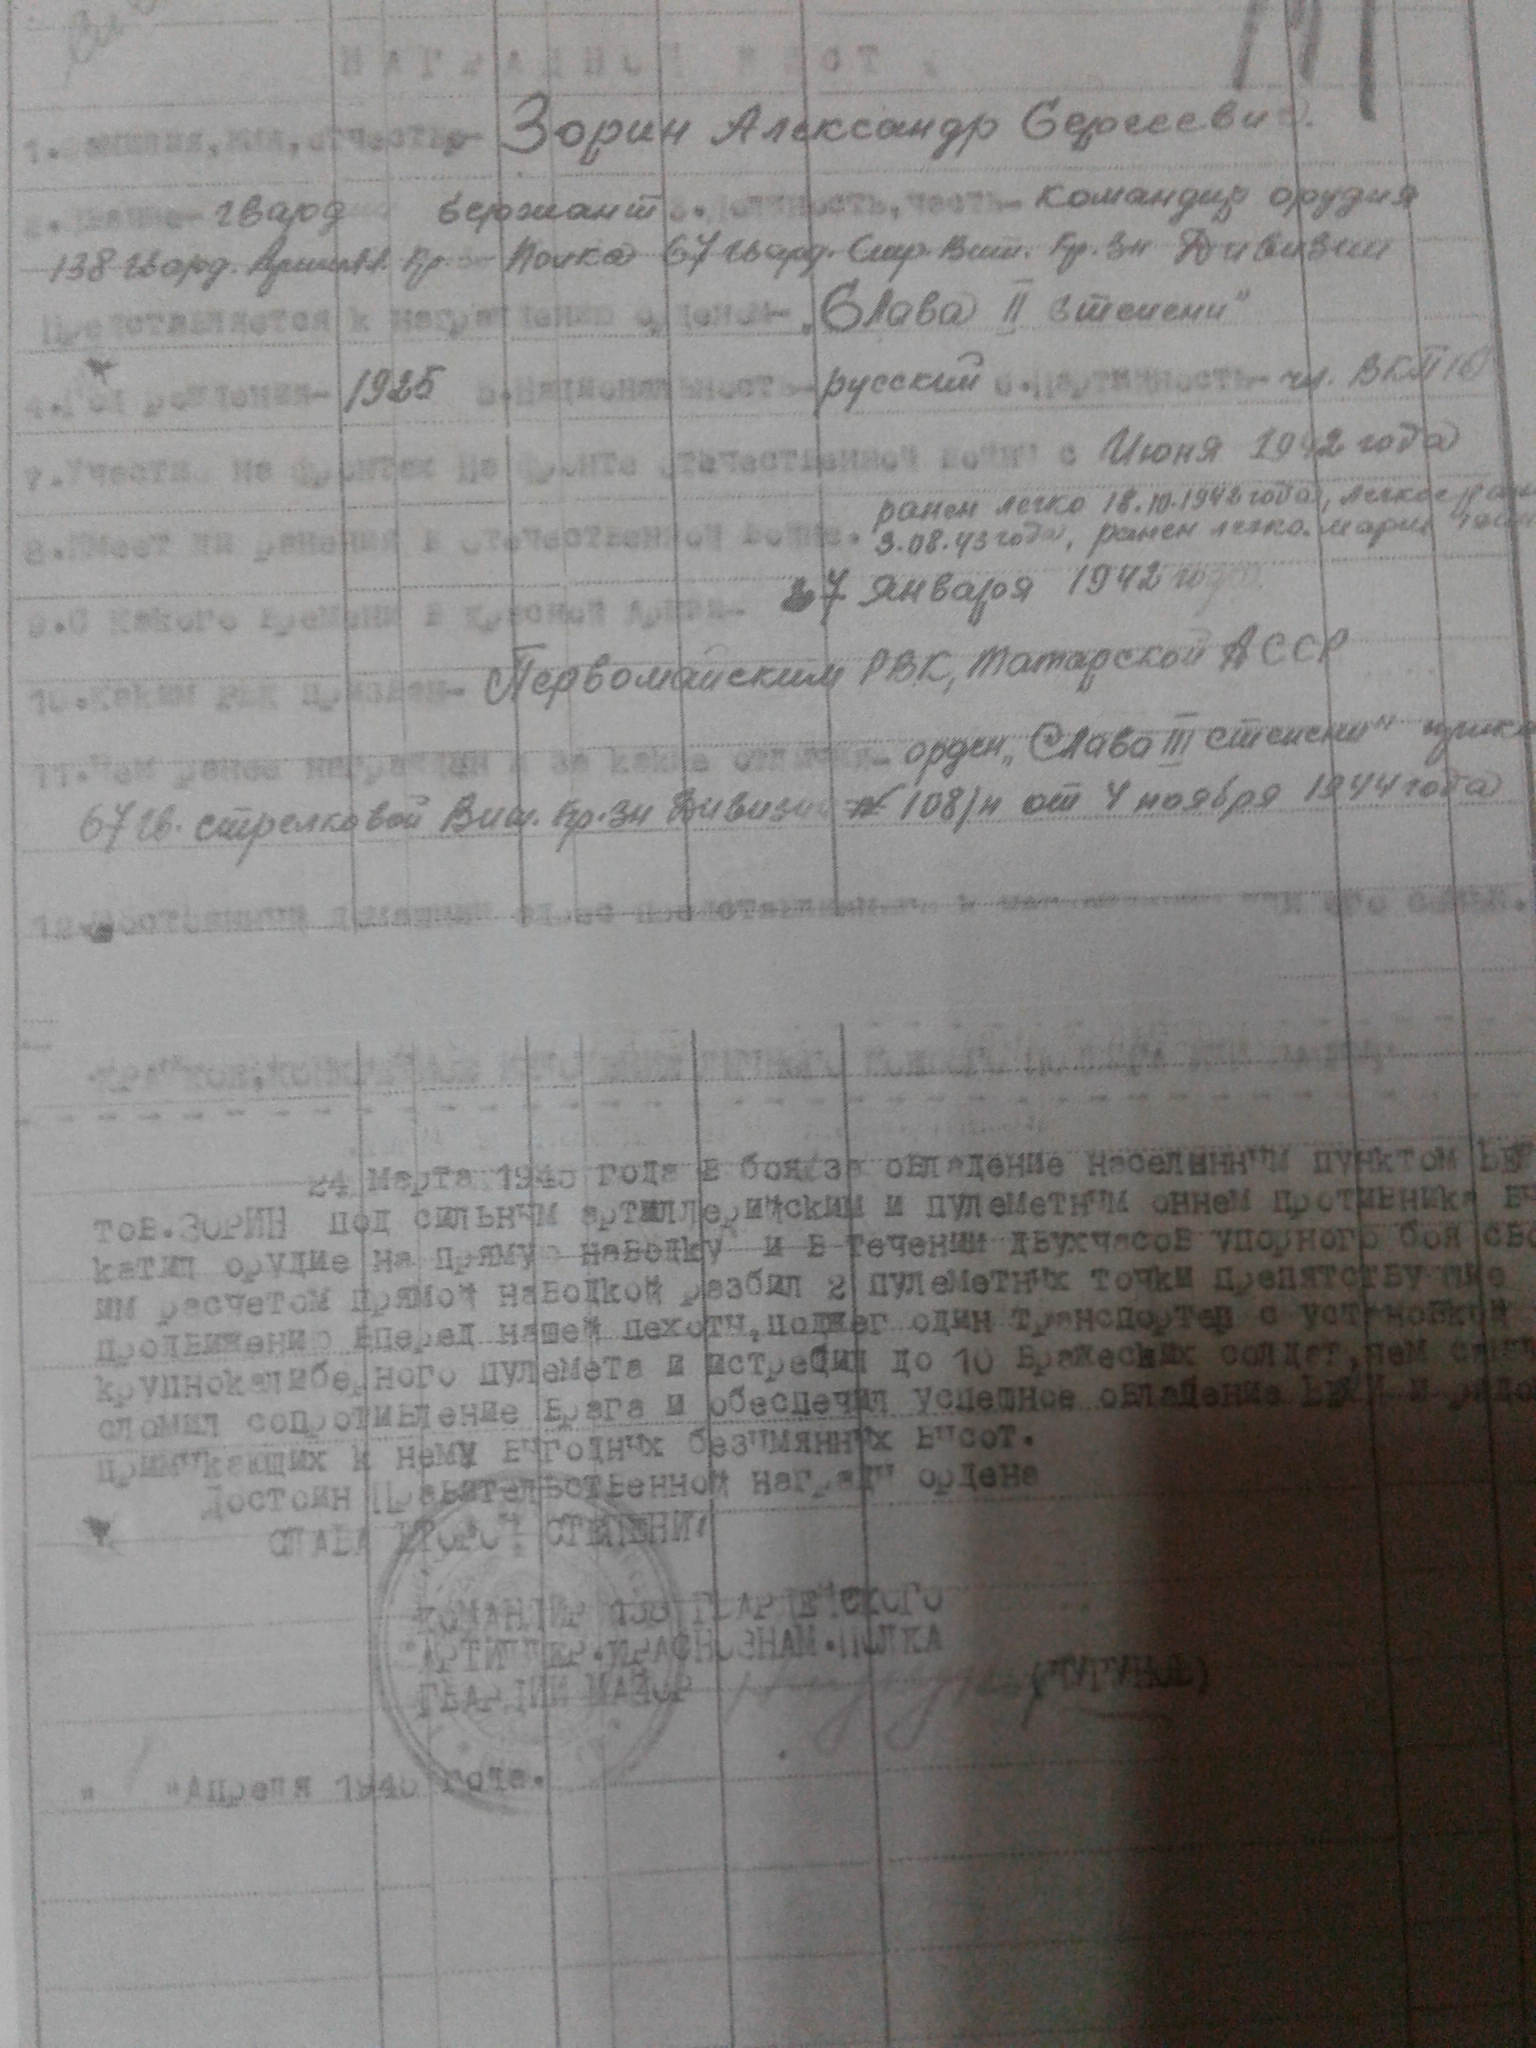 НАГРАДНОЙ ЛИСТ.
1. Фамилия, имя, отчество- Зорин Александр Сергеевич.
2. Звание- гвард сержант 3. Должность, часть- командир орудия
138 гвард. Артилл. Кр. Зн Полка 67 гвард. Стр. Вит. Кр. Зн Дивизии
Представляется к награждению орденом- „Слава II степени"
4. Год рождения- 1925 5. Национальность- русский 6. Партийность- чл. ВКП/б
7. Участие на фронтах На фронте отечественной войны с Июня 1942 года
ранен легко 18.10.1942 года, легкое
8. Имеет ли ранения в отечественной войне. 3.08.43 года, ранен легко.
9. С какого времени в Красной Армии- 7 января 1942 года
10. Каким РВК призван- Первомайским РВК, Татарской АССР
11. Чем ранее награжден и за какие отличия- орден „Слава III степени"
67 гв. стрелковой Вит. Кр. Зн Дивизии № 108/н от 4 ноября 1944 года
12. Постоянный домашний адрес представляемого к награждению или его семьи.
24 Марта 1945 года в бою за овладение населенным пунктом
тов. ЗОРИН под сильным артиллерийским и пулеметным оннем противника вы
катил орудие на пряму наводку и в течении двухчасов упорного боя сво
им расчетом прямой наводкой разбил 2 пулеметных точки препятству
продвижению вперед нашей пехоты, поджег один транспортер с установкой
крупнокалиберного пулемета и истребил до 10 вражеских солдат, чем
сломил сопротивление врага и обеспечил успешное овладение и
примыкающих к нему выгодных безымянных высот.
Достоин Правительственной награды ордена
СЛАВА ВТОРОЙ СТЕПЕНИ"
КОМАНДИР 138 ГВАРДЕЙСКОГО
АРТИЛЛЕР. КРАСНОЗНАМ. ПОЛКА
ГВАРДИИ МАЙОР (ЧУГУНОВ)
" "Апреля 1945 года.